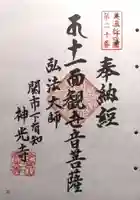 美濃新四国
第二十番
奉納経
十一面観世音菩薩
弘法大師
関市下有知
神光寺